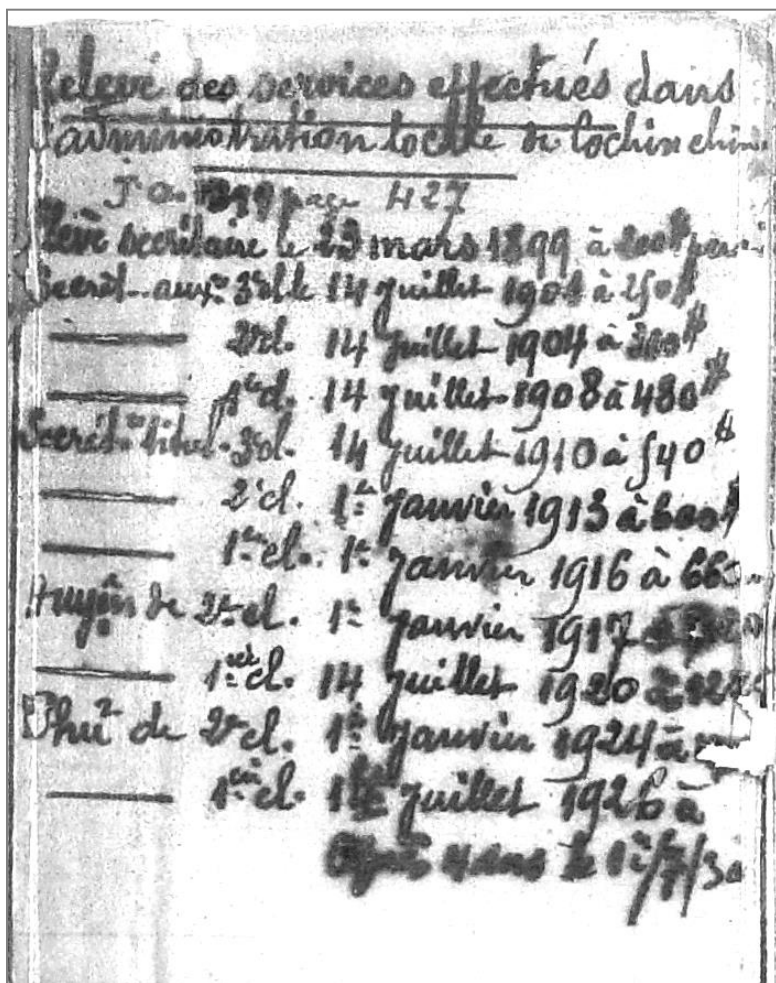 Relevé des services effectués dans
l'administration locale de Cochinchine
J.O. 1899 page 427
Élève secrétaire le 23 mars 1899 à 200$
Secrét. aux.re 3e cl. le 14 juillet 1901 à 250$
2e cl. 14 juillet 1904 à 300$
1e cl. 14 juillet 1908 à 480$
Secrét. titul. 3e cl. 14 juillet 1910 à 540$
2e cl. 1er janvier 1913 à 600$
1ère cl. 1er janvier 1916 à 660
Huyện de 2e cl. 1er janvier 1917 à
1ère cl. 14 juillet 1920 à
Phủ de 2e cl. 1er janvier 1924 à
1ère cl. juillet 1926 à
Après 4 ans le